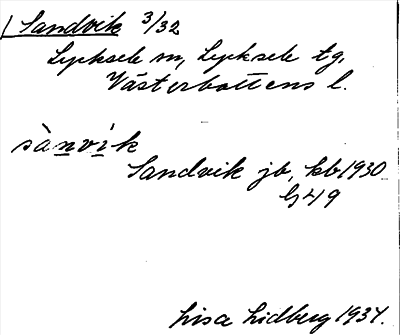 Sandvik 3/32
Lycksele sn, Lycksele tg.
Västerbottens l.
sànvík
Sandvik jb, kb 1930
G 49
Lisa Lidberg 1934.